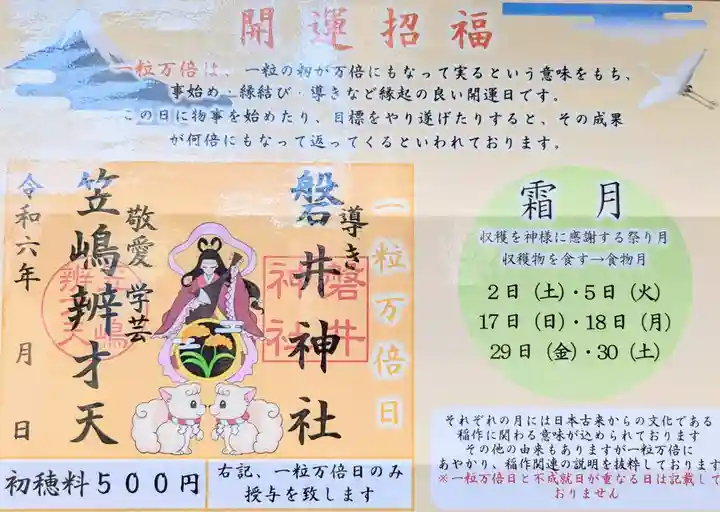 開運招福
一粒万倍は、一粒の籾が万倍にもなって実るという意味をもち、
事始め・縁結び・導きなど縁起の良い開運日です。
この日に物事を始めたり、目標をやり遂げたりすると、その成果
が何倍にもなって返ってくるといわれております。
一粒万倍日
導き
磐井神社
磐井
神社
敬愛 学芸
笠嶋辨才天
笠嶋
辨才天
令和六年 月 日
初穂料500円
右記、一粒万倍日のみ
授与を致します
霜月
収穫を神様に感謝する祭り月
収穫物を食す→食物月
2日(土)・5日(火)
17日(日)・18日(月)
29日(金)・30日(土)
それぞれの月には日本古来からの文化である
稲作に関わる意味が込められております
その他の由来もありますが一粒万倍に
あやかり、稲作関連の説明を抜粋しております
※一粒万倍日と不成就日が重なる日は記載して
おりません